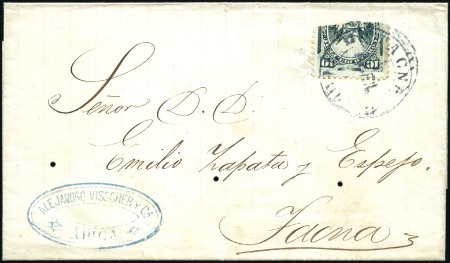 TACNA
Señor D. D.
Emilio Zapata y Espejo.
Tacna
ALEJANDRO VISSCHER Y CA.
ARICA